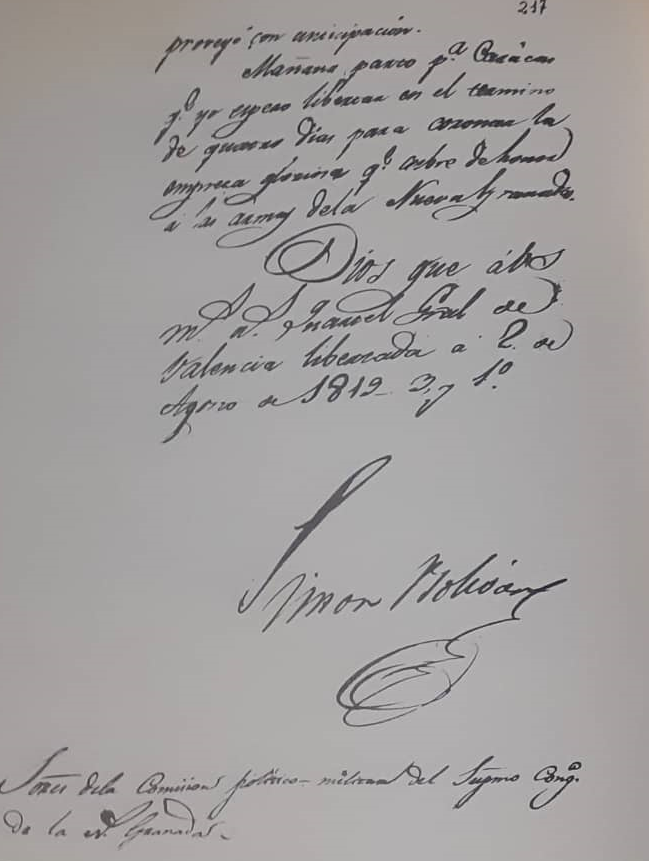 217
proveyó con anticipación.
Mañana parto p.ª Carácas
q.º yo espero libertar en el termino
de quatro dias para coronar la
empresa gloriosa q.º cubre de honor
á las armas dela Nueva Granada.
Dios gue á VS
m.s a.s Quartel Gral de
Valencia libertada á 2. de
Agosto de 1813_ 3,, y 1.º
Simon Bolivar
Sōres dela Comision politico-militar del Supmo Cong.º
de la N.ª Granada_